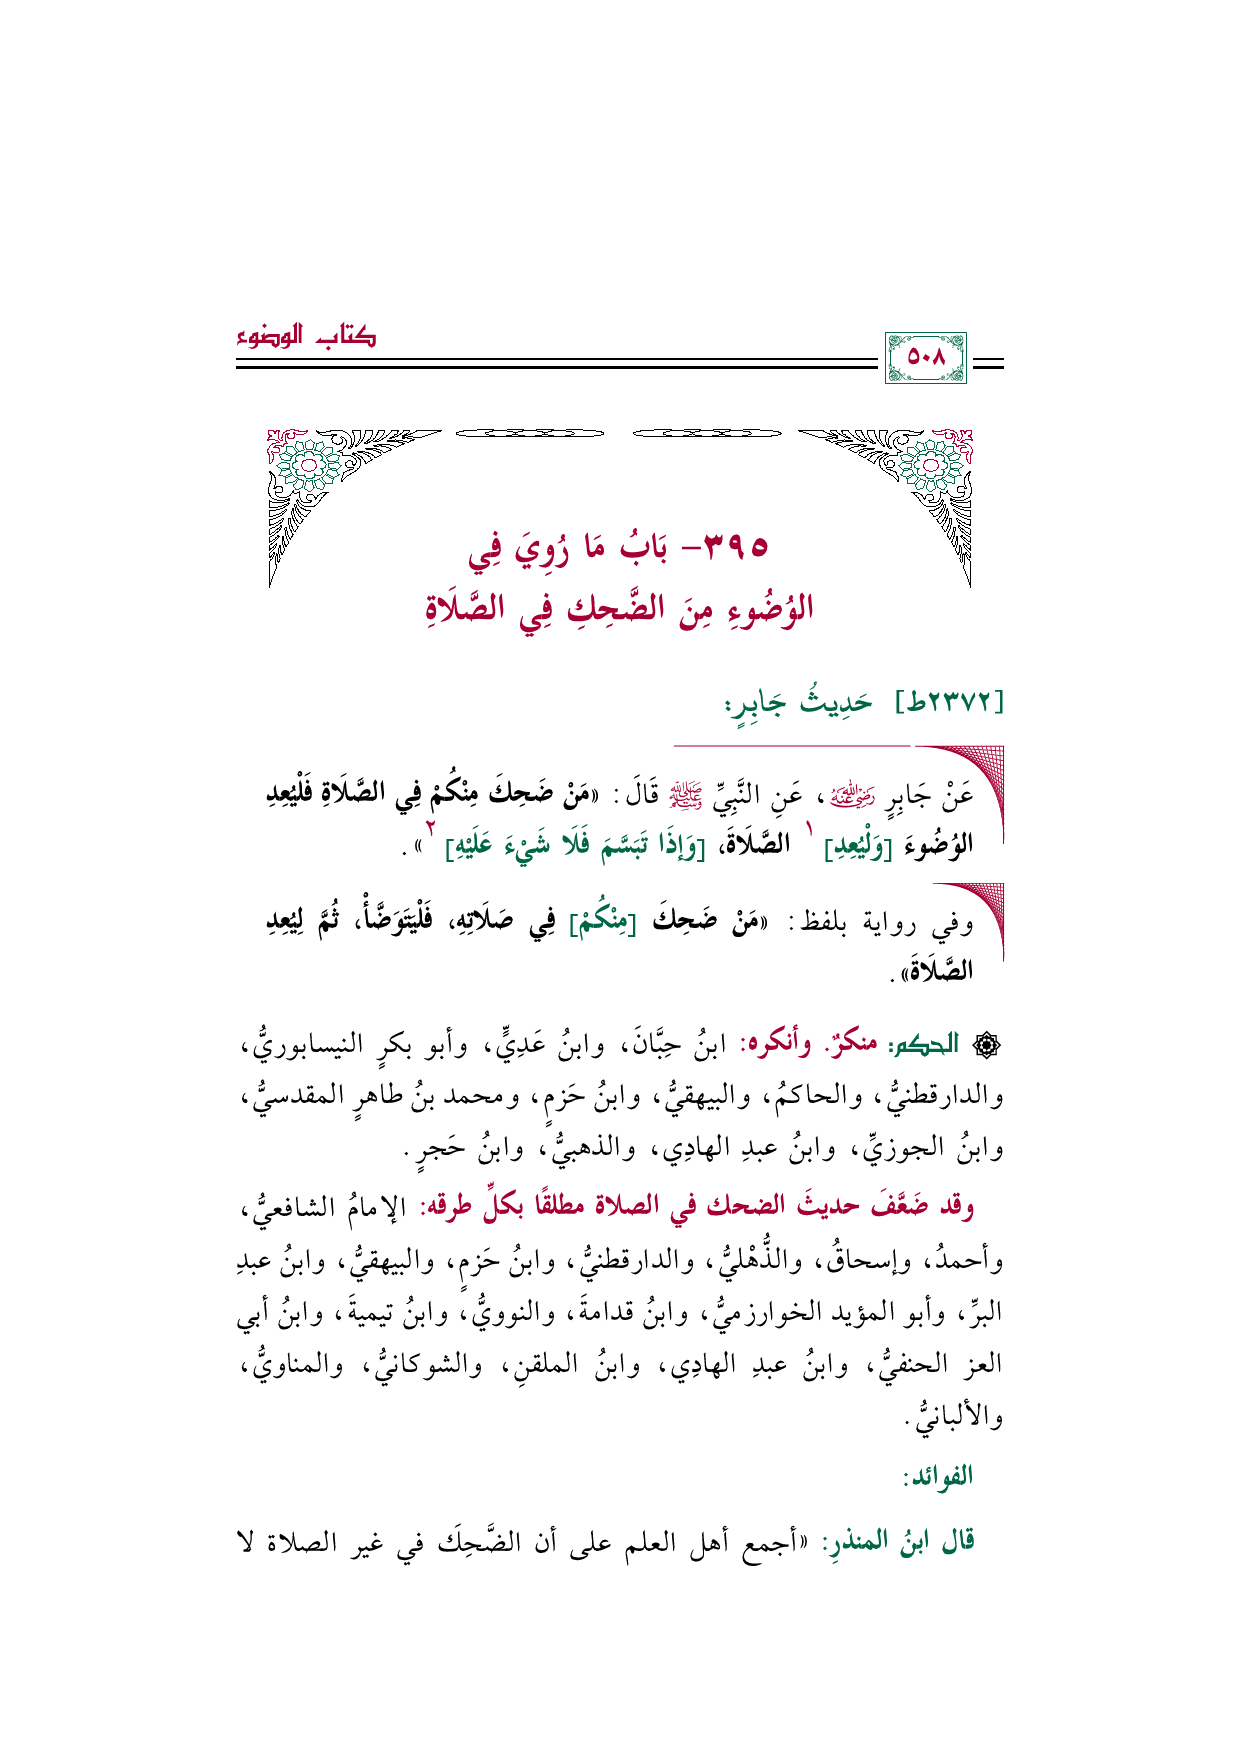 كتاب الوضوء
٥٠٨
٣٩٥- بَابُ مَا رُوِيَ فِي
الوُضُوءِ مِنَ الضَّحِكِ فِي الصَّلَاةِ
[٢٣٧٢ط] حَدِيثُ جَابِرٍ:
عَنْ جَابِرٍ رضي الله عنه، عَنِ النَّبِيِّ ﷺ قَالَ: «مَنْ ضَحِكَ مِنْكُمْ فِي الصَّلَاةِ فَلْيُعِدِ
الوُضُوءَ [وَلْيُعِدِ]١ الصَّلَاةَ، [وَإِذَا تَبَسَّمَ فَلَا شَيْءَ عَلَيْهِ]٢».
وفي رواية بلفظ: «مَنْ ضَحِكَ [مِنْكُمْ] فِي صَلَاتِهِ، فَلْيَتَوَضَّأْ، ثُمَّ لِيُعِدِ
الصَّلَاةَ».
الحكم: منكرٌ. وأنكره: ابنُ حِبَّانَ، وابنُ عَدِيٍّ، وأبو بكرٍ النيسابوريُّ،
والدارقطنيُّ، والحاكمُ، والبيهقيُّ، وابنُ حَزمٍ، ومحمد بنُ طاهرٍ المقدسيُّ،
وابنُ الجوزيِّ، وابنُ عبدِ الهادِي، والذهبيُّ، وابنُ حَجرٍ.
وقد ضَعَّفَ حديثَ الضحك في الصلاة مطلقًا بكلِّ طرقه: الإمامُ الشافعيُّ،
وأحمدُ، وإسحاقُ، والذُّهْليُّ، والدارقطنيُّ، وابنُ حَزمٍ، والبيهقيُّ، وابنُ عبدِ
البرِّ، وأبو المؤيد الخوارزميُّ، وابنُ قدامةَ، والنوويُّ، وابنُ تيميةَ، وابنُ أبي
العز الحنفيُّ، وابنُ عبدِ الهادِي، وابنُ الملقنِ، والشوكانيُّ، والمناويُّ،
والألبانيُّ.
الفوائد:
قال ابنُ المنذرِ: «أجمع أهل العلم على أن الضَّحِكَ في غير الصلاة لا